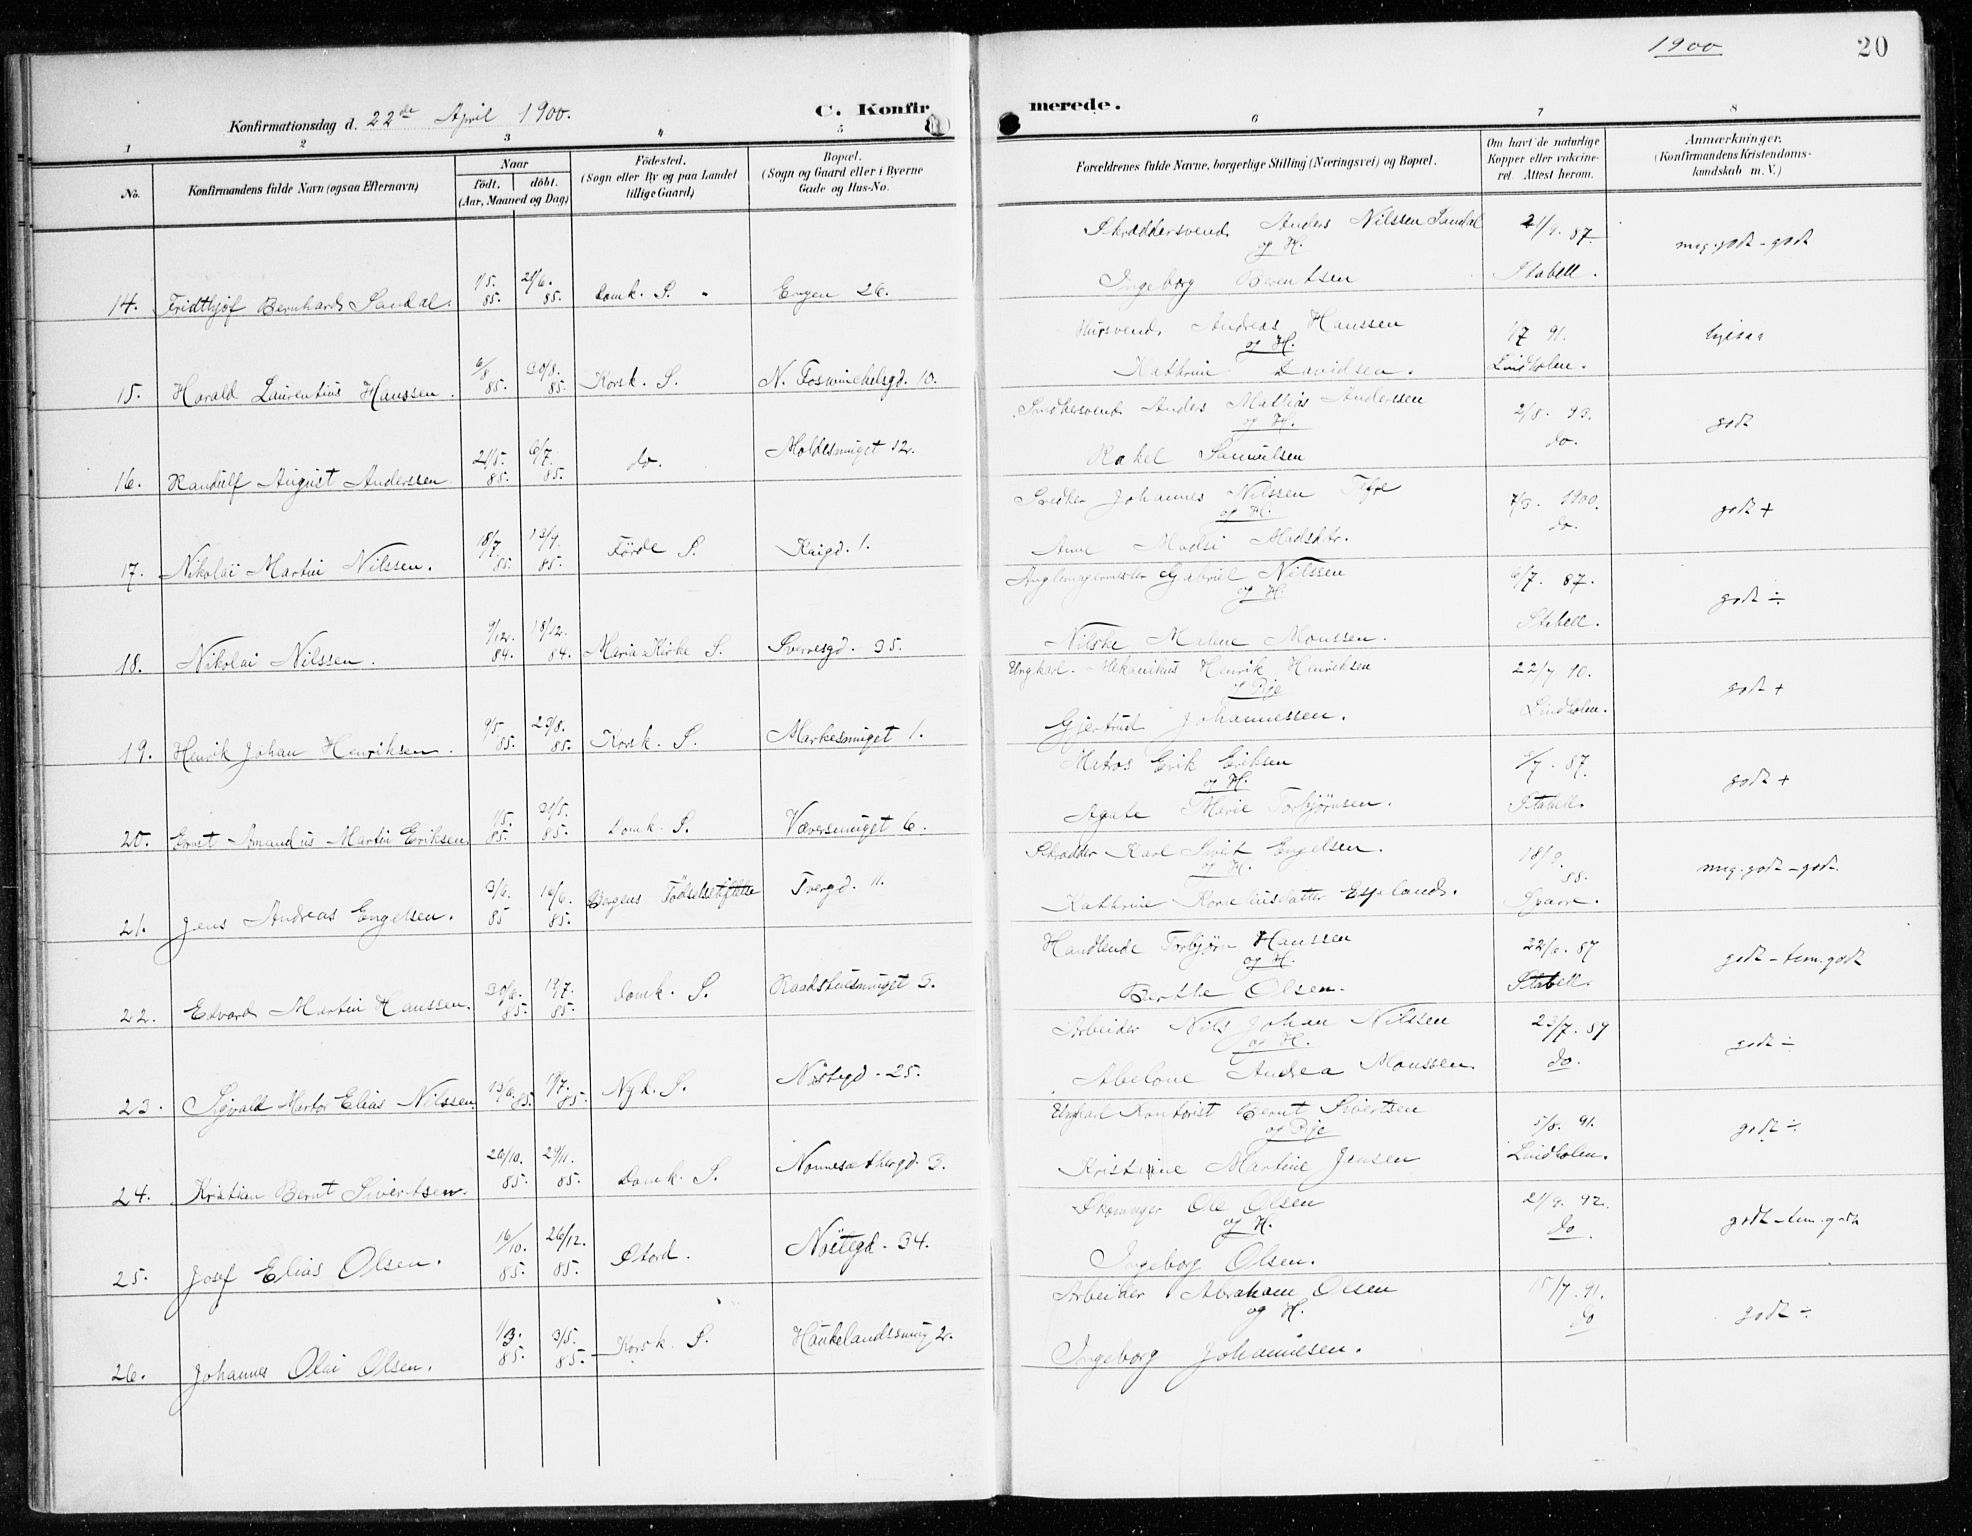 1900
20
Konfirmationsdag d. 22de April 1900.
C. Konfirmerede.
1 2 3 4 5 6 7 8
No.
Konfirmandens fulde Navn (ogsaa Efternavn)
Naar
födt. döbt.
(Aar, Maaned og Dag)
Födested.
(Sogn eller By og paa Landet
tillige Gaard)
Bopæl.
(Sogn og Gaard eller i Byerne
Gade og Hus-No.
Forældrenes fulde Navne, borgerlige Stilling (Næringsvei) og Bopæl.
Om havt de naturlige
Kopper eller vakcine-
ret. Attest herom.
Anmærkninger.
(Konfirmandens Kristendoms-
kundskab m. V.)
Skræddersvend Anders Nilssen Sandal 87. meg.godt - godt
og H.
14. Fridthjof Bernhard Sandal. 1/5. 85. 21/6. 85. Domk. S. Engen 26. Ingeborg Berentsen Stabell.
Andreas Hanssen 91.
og H.
15. Harald Laurentius Hanssen. 6/8 85. 30/8. 85. Korsk. S. N. Foswinckelsgd. 10. Kathrine Davidsen. Lindholm.
Smedkersvend Anders Mathias Anderssen 2/8. 93. godt
og H.
16. Randulf August Anderssen 21/5. 85. 6/7. 85. do. Moldesmuget 12. Rakel Samuelsen do.
Snedker Johannes Nilssen 7/3. 1900. godt +
og H.
17. Nikolai Martin Nilssen. 18/7 85. 13/9. 85. Förde S. Kaigd. 1. Anne Madsdtr. do.
Gabriel Nilssen 6/7. 87. godt ÷
og H.
18. Nikolai Nilssen. 9/12. 84. 18/12. 84. Maria Kirke S. Sverresgd. 35. Nilske Malene Monssen. Stabell.
Ungkarl. Mekanikus Henrik Henriksen 22/7 10. godt +
og Pige
19. Henrik Johan Henriksen. 9/5 85. 23/8. 85. Korsk. S. Markesmuget 1. Gjertrud Johannessen. Lindholm.
Matros Erik Eriksen 87. godt +
og H.
20. Ernst Amandus Martin Eriksen 1/5. 85. 31/5. 85. Domk. S. Væversmuget 6. Agate Marie Torbjørnsen. Stabell.
Skrædder Karl Sivert Engelsen. 18/9. 88. meg.godt - godt.
og H.
21. Jens Andreas Engelsen. 3/6. 85 85. Bergens Fødselsstiftelse Tvergd. 11. Kathrine Korneliusdatter Espeland. Sparre.
Handlende Torbjørn Hanssen 22/6. 87 godt - tem. godt
og H.
22. Edvard Martin Hanssen. 30/6. 85. 19/7. 85. Domk. S. Raadstuesmuget 3. Berthe Olsen. Stabell.
Arbeider Nils Johan Nilssen 23/7. 89 godt ÷
og H.
23. Sigvald Martov Elias Nilssen. 13/6. 85. 85. Nyk. S. Nøstegd. 25. Abelone Andrea Monssen. do.
Ungkarl Kontorist Bernt Sivertsen 5/8. 91. godt ÷
og Pige
24. Kristian Bernt Sivertsen. 20/10. 85. 29/11. 85. Domk. S. Nonnesætergd. 3. Kristine Martine Jensen Lindholm.
Skomager Ole Olsen 21/9. 92. godt - tem. godt
og H.
25. Josef Elias Olsen. 16/10. 85. 26/12. 85. Stord. Nöstegd. 34. Ingeborg Olsen. do.
Arbeider Abraham Olsen 15/7. 91. godt ÷
og H.
26. Johannes Olai Olsen. 1/3. 85. 3/5. 85. Korsk. S. Haukelandssmug 2. Ingeborg Johannesen. do